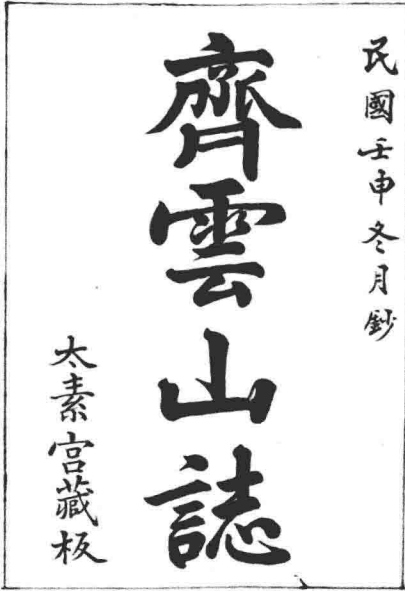 民國壬申冬月鈔
齊雲山誌
太素宮藏板